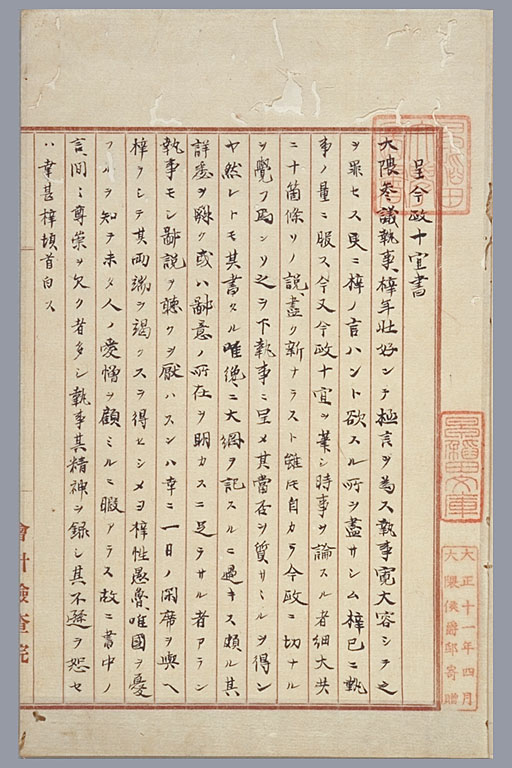 呈今政十宜書
大隈参議執事梓年壮好ンテ極言ヲ為ス執事寛大容シテ之
ヲ罪セス更ニ梓ノ言ハント欲スル所ヲ盡サシム梓已ニ執
事ノ量ニ服ス今又今政十宜ヲ草シ時事ヲ論スル者細大共
ニ十箇條ソノ説盡ク新ナラスト雖モ自カラ今政ニ切ナル
ヲ覺フ為ンソ之ヲ下執事ニ呈メ其當否ヲ質サヽルヲ得ン
ヤ然レトモ其書スル唯纔ニ大綱ヲ記スルニ過キス頗ル其
詳悉ヲ闕ク或ハ鄙意ノ所在ヲ明カスニ足ラサル者アラン
執事モシ鄙説ヲ聴クヲ厭ハスンハ幸ニ一日ノ閑席ヲ與ヘ
梓ヲシテ其両端ヲ竭クスヲ得セシメヨ梓性愚魯唯國ヲ憂
フルヲ知テ未タ人ノ愛憎ヲ顧ミルニ暇アラス故ニ書中ノ
言間ニ尊崇ヲ欠ク者多シ執事其精神ヲ録シ其不遜ヲ恕セ
ハ幸甚梓頓首白ス
會計檢査院
早稲田文庫
大正十一年四月
大隈侯爵邸寄贈